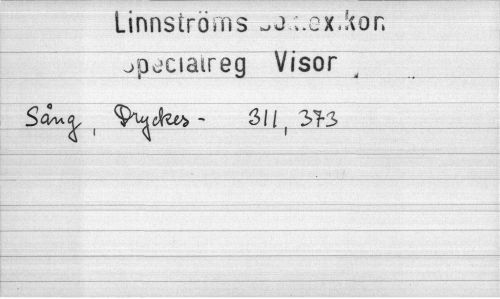 Linnströms Boklexikon
Specialreg Visor
Sång, Dryckes- 311, 373